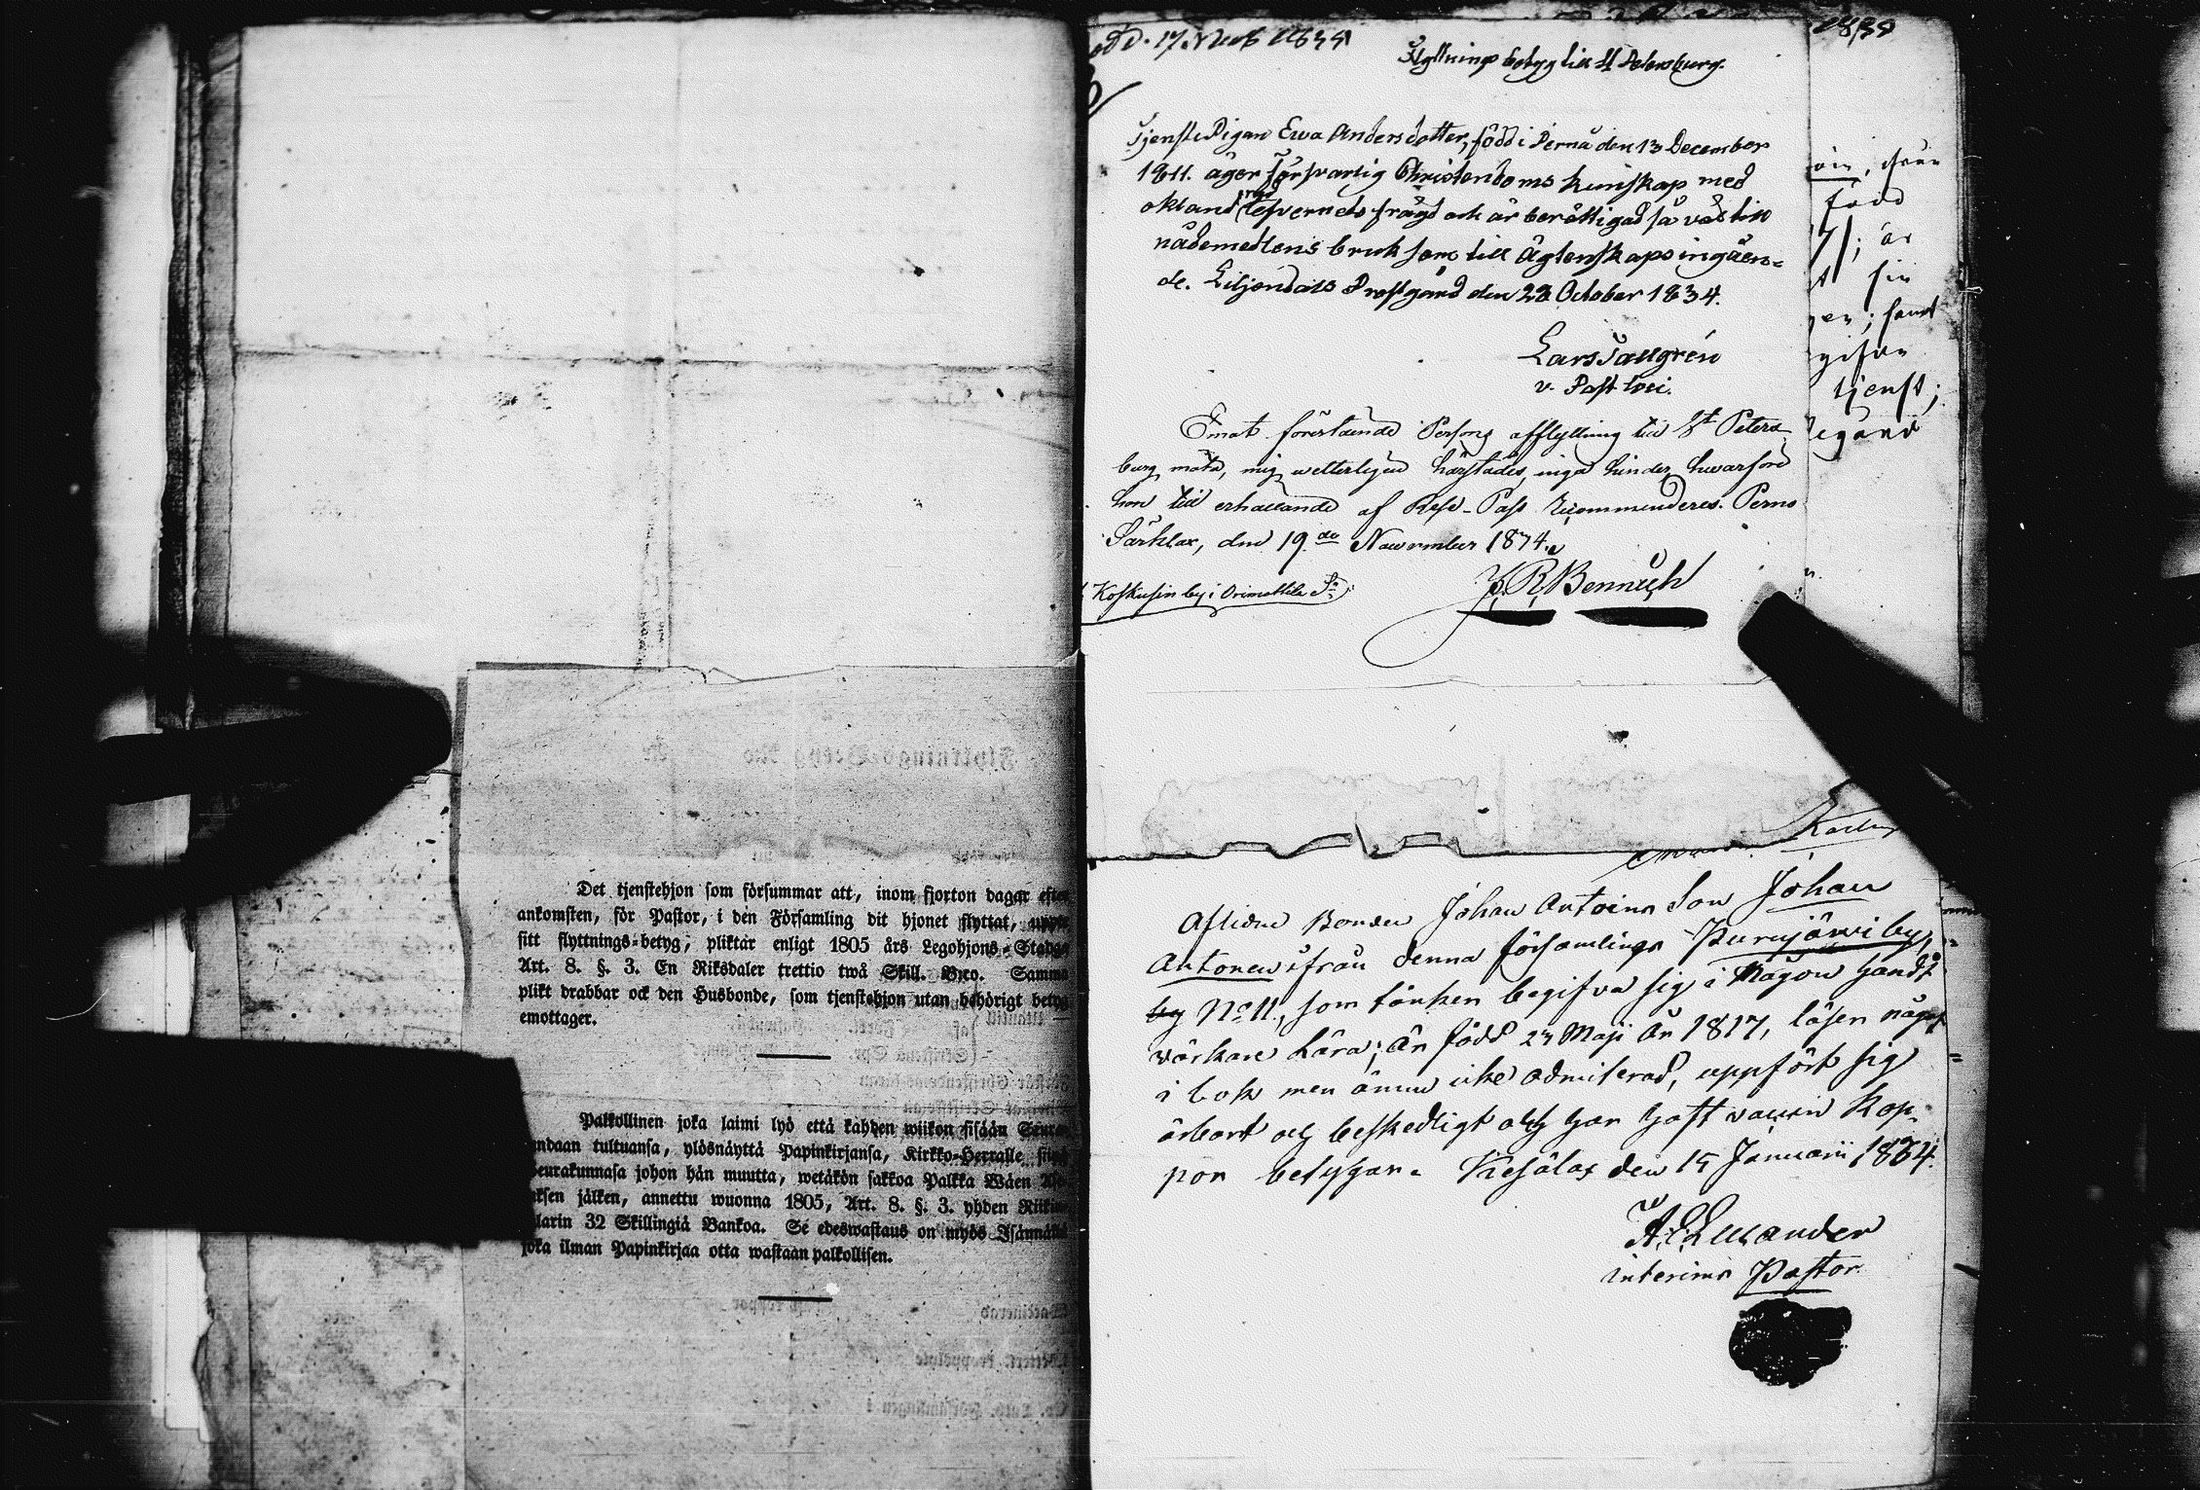 Det tjenstehjon som försummar att, inom fjorton dagar efter
ankomsten, för Pastor, i den Församling dit hjonet flyttat, uppte
sitt flyttnings-betyg, pliktar enligt 1805 års Legohjons-Stadga
Art. 8. §. 3. En Riksdaler trettio twå Skill. Bco. Samma
plikt drabbar ock den Husbonde, som tjenstehjon utan behörigt betyg
emottager.
Palkollinen joka laimi lyö että kahden wiikon sisään Seura-
undaan tultuansa, ylösnäyttä Papinkirjansa, Kirkko-Herralle siinä
Seurakunnasa johon hän muutta, wetäkön sakkoa Palkka Wäen
uksen jälken, annettu wuonna 1805, Art. 8. §. 3. yhden Riikin
larin 32 Skillingiä Bankoa. Se edeswastaus on myös Isännällä
joka ilman Papinkirjaa otta wastaan palkollisen.
Flyttnings betyg till St Petersburg.
TjenstePigan Ewa Andersdotter, född i Perna den 13 December
1811. äger försvarlig Christendoms kunskap med
oklandradt lefvernets frägd och är berättigad så väl till
nådemedlens bruk som till Äktenskaps ingåen-
de. Liljendals Prestgård den 28 October 1834.
Lars Tallgrén
v. Past loci.
Emot förestående Persons afflyttning till St Peters-
burg möta, mig wetterligen härstädes, inga hinder, hwarföre
hon till erhållande af Rese-Pass recommenderes. Perno
Särklax, den 19de November 1834.
J. R. Bennich
Koskusin by i Orimattila Sn
född
är
sin
; samt
gifva
tjenst;
egård
Aflidne Bonden Johan Antoins Son Johan
Antonen ifrån denna församlings Purujärwi by,
by No 11, som tänker begifva sig i någon handt
wärkare Lära; är född 23 Maji år 1817, läser något
i bok men ännu icke admitterad, uppfört sig
ärbart och beskedligt och har haft waccin kop-
por betygar. Kesälax den 15 Januarii 1834.
interims Pastor.